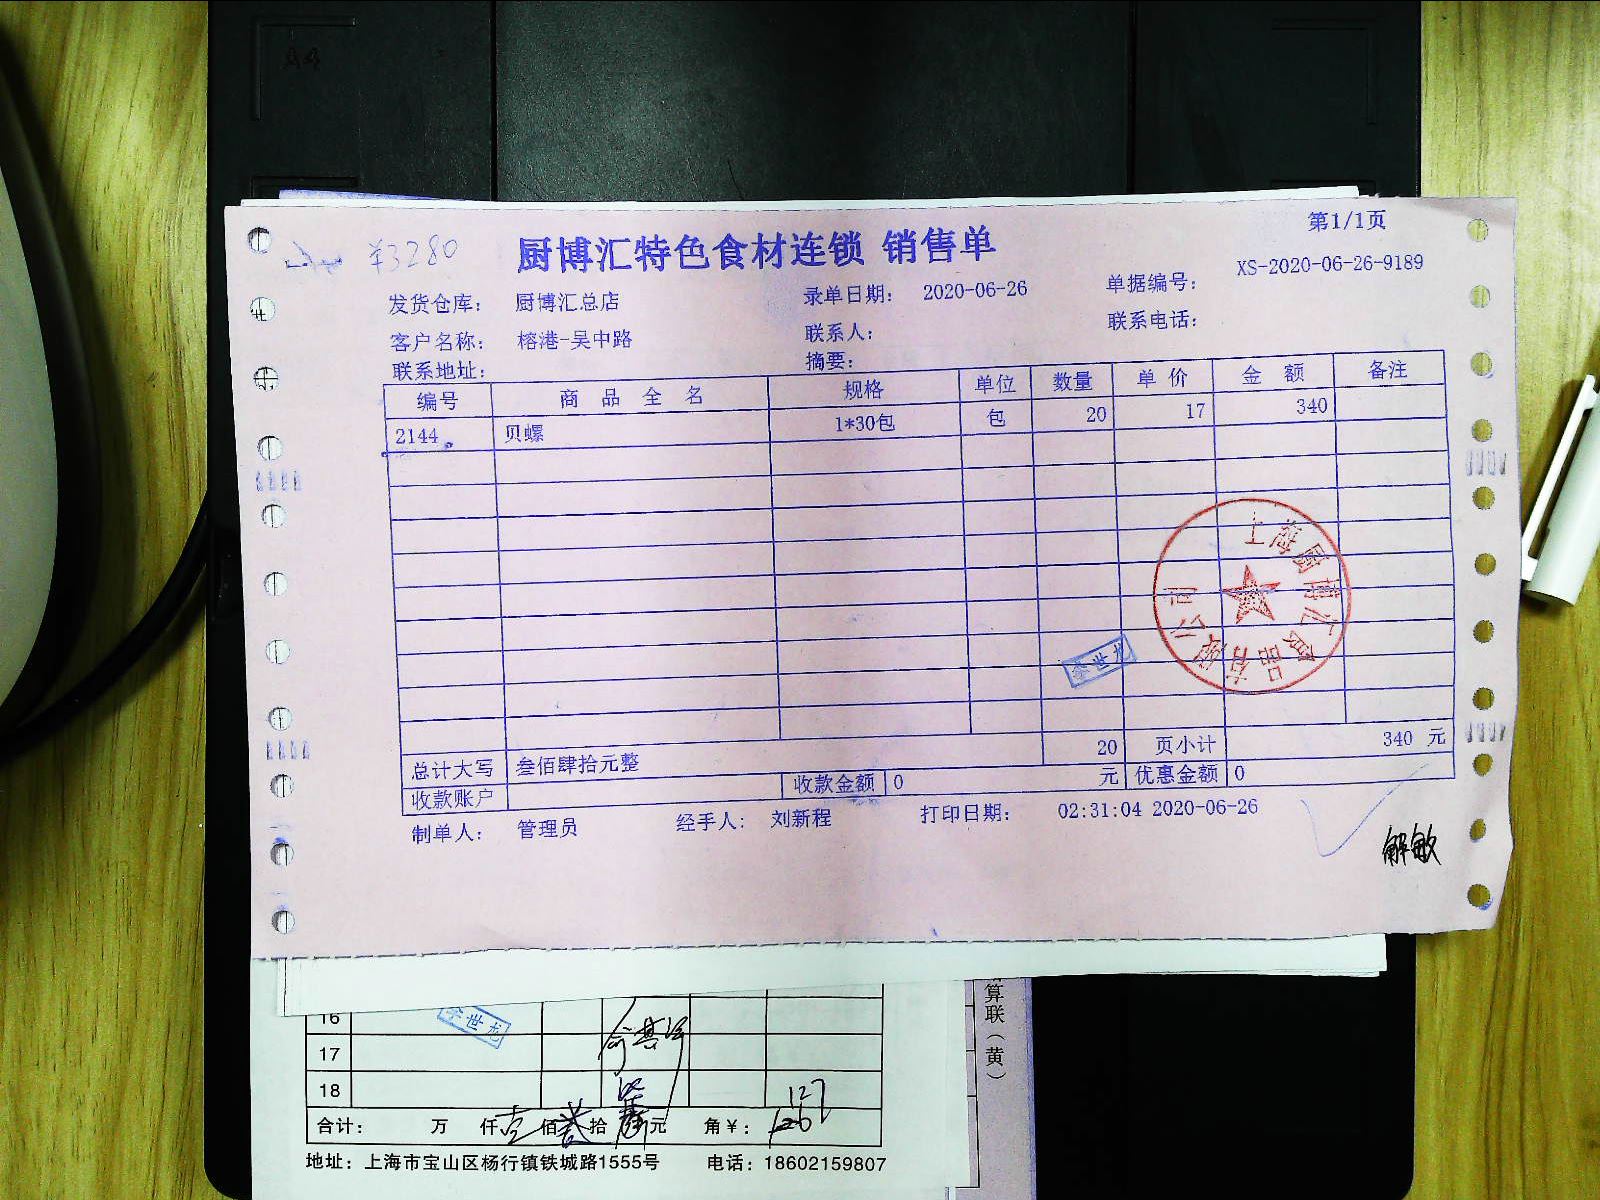 A4
¥3280
第1/1页
厨博汇特色食材连锁 销售单
发货仓库： 厨博汇总店 录单日期： 2020-06-26 单据编号： XS-2020-06-26-9189
客户名称： 榕港-吴中路 联系人： 联系电话：
联系地址： 摘要：
编号 商品全名 规格 单位 数量 单价 金额 备注
2144 贝螺 1*30包 包 20 17 340
上海厨博汇食品有限公司
李世龙
20 页小计 340 元
总计大写 叁佰肆拾元整
收款账户 收款金额 0 元 优惠金额 0
制单人： 管理员 经手人： 刘新程 打印日期： 02:31:04 2020-06-26
解敏
算联（黄）
16
李世龙
17
18
127
合计： 万 仟 佰 拾 元 角￥：
地址：上海市宝山区杨行镇铁城路1555号 电话：18602159807